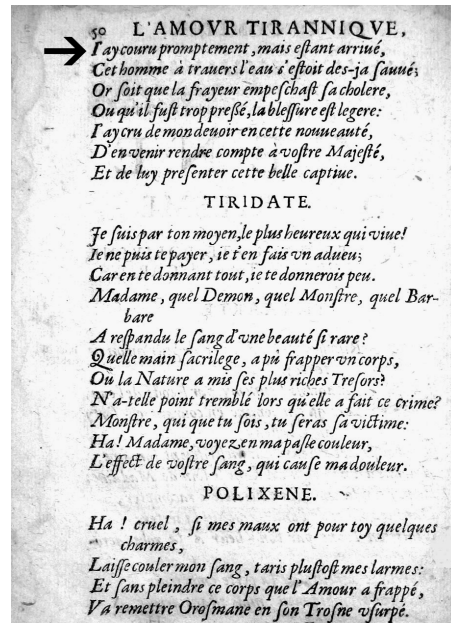 50 L'AMOVR TIRANNIQVE,
I'ay couru promptement, mais estant arriué,
Cet homme à trauers l'eau s'estoit des-ja sauué;
Or soit que la frayeur empeschast sa cholere,
Ou qu'il fust trop pressé, la blessure est legere:
I'ay cru de mon deuoir en cette nouueauté,
D'en venir rendre compte à vostre Majesté,
Et de luy presenter cette belle captiue.
TIRIDATE.
Je suis par ton moyen, le plus heureux qui viue!
Ie ne puis te payer, ie t'en fais vn adueu;
Car en te donnant tout, ie te donnerois peu.
Madame, quel Demon, quel Monstre, quel Bar-
bare
A respandu le sang d'vne beauté si rare?
Quelle main sacrilege, a pû frapper vn corps,
Où la Nature a mis ses plus riches Tresors?
N'a-telle point tremblé lors qu'elle a fait ce crime?
Monstre, qui que tu sois, tu seras sa victime:
Ha! Madame, voyez en ma pasle couleur,
L'effect de vostre sang, qui cause ma douleur.
POLIXENE.
Ha! cruel, si mes maux ont pour toy quelques
charmes,
Laisse couler mon sang, taris plustost mes larmes:
Et sans pleindre ce corps que l'Amour a frappé,
Va remettre Orosmane en son Trosne vsurpé.